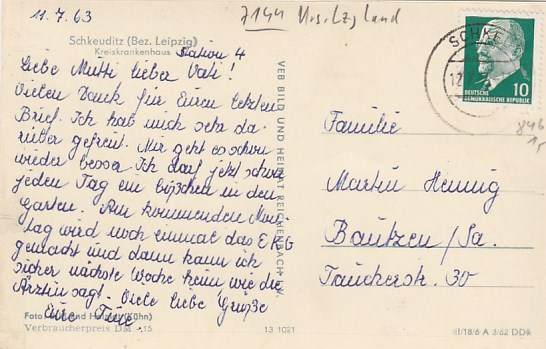 11.7.63
7144 Urs. Lzg land
Schkeuditz (Bez. Leipzig)
Kreiskrankenhaus
Station 4
Liebe Mutti lieber Vati!
Vielen Dank für Euren letzten
Brief. Ich hab mich sehr da-
rüber gefreut. Mir geht es schon
wieder besser Ich darf jetzt schon
jeden Tag ein bißchen in den
Garten. Am kommenden Mon-
tag wird noch einmal das EKG
gemacht und dann kann ich
sicher nächste Woche heim wie die
Ärztin sagt. Viele liebe Grüße
Eure
Foto und Handabzug (Kühn)
Verbraucherpreis DM -,15
13 1021
VEB BILD UND HEIMAT REICHENBACH I. V.
SCHKE
12
10
DEUTSCHE
DEMOKRATISCHE REPUBLIK
846
15
Familie
Martin Hennig
Bautzen/Sa.
Taucherstr. 30
III/18/6 A 3/62 DDR